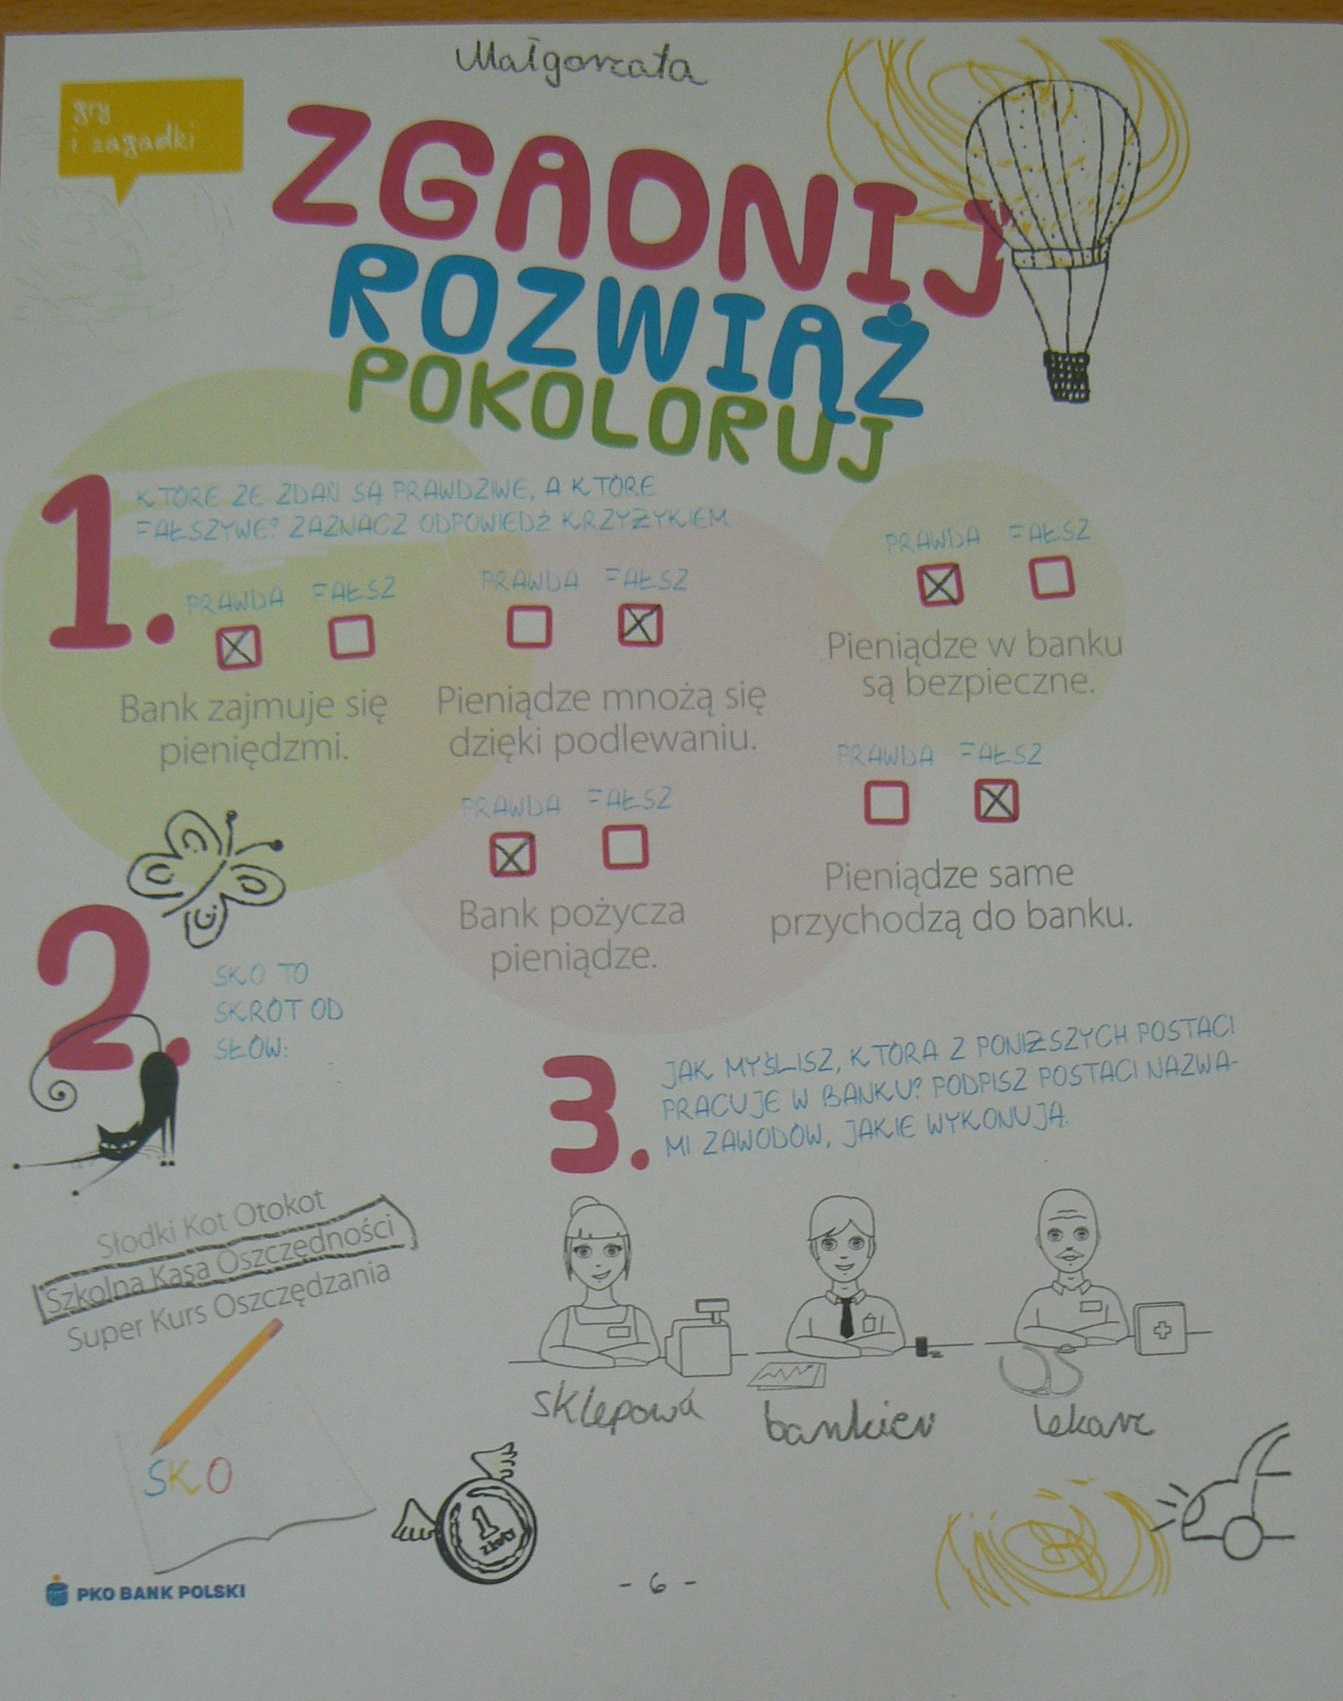 Małgorzata
gry
i zagadki
ZGADNIJ
ROZWIĄŻ
POKOLORUJ
1.
KTÓRE ZE ZDAŃ SĄ PRAWDZIWE, A KTÓRE
FAŁSZYWE? ZAZNACZ ODPOWIEDŹ KRZYŻYKIEM
PRAWDA FAŁSZ
Bank zajmuje się
pieniędzmi.
PRAWDA FAŁSZ
Pieniądze mnożą się
dzięki podlewaniu.
PRAWDA FAŁSZ
Pieniądze w banku
są bezpieczne.
PRAWDA FAŁSZ
Bank pożycza
pieniądze.
PRAWDA FAŁSZ
Pieniądze same
przychodzą do banku.
2.
SKO TO
SKRÓT OD
SŁÓW:
Słodki Kot Otokot
Szkolna Kasa Oszczędności
Super Kurs Oszczędzania
SKO
3.
JAK MYŚLISZ, KTÓRA Z PONIŻSZYCH POSTACI
PRACUJE W BANKU? PODPISZ POSTACI NAZWA-
MI ZAWODÓW, JAKIE WYKONUJĄ.
sklepowa bankier lekarz
1
złoty
PKO BANK POLSKI
- 6 -